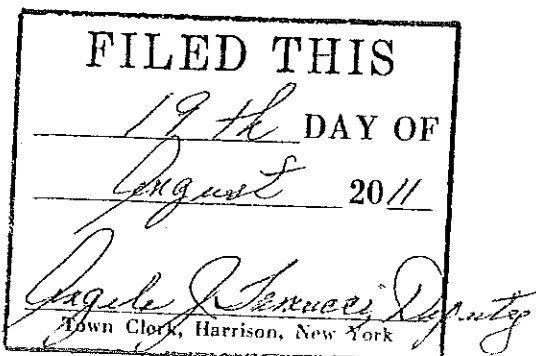 FILED THIS
19th DAY OF
August 2011
J. Deputy
Town Clerk, Harrison, New York